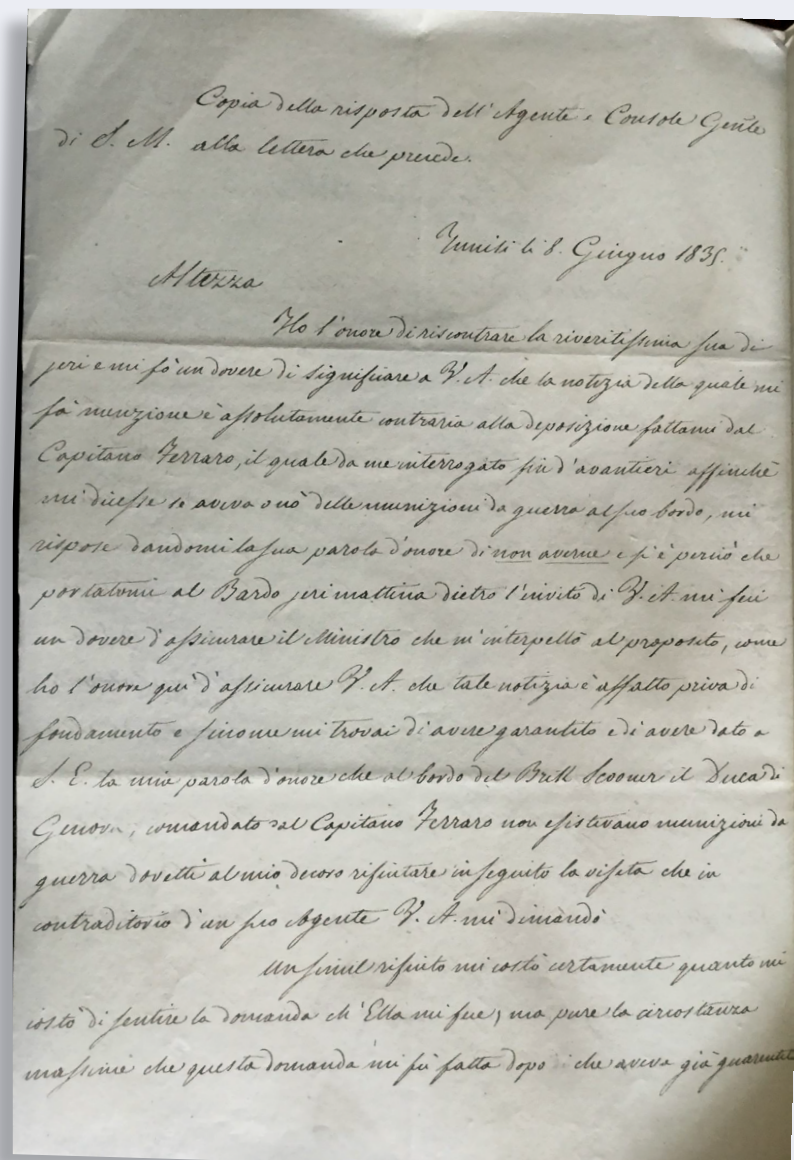 Copia della risposta dell'Agente e Console Genle
di S. M. alla lettera che precede.
Tunisi li 8. Giugno 1835.
Altezza
Ho l'onore di riscontrare la riveritissima sua di
jeri e mi fò un dovere di significare a V. A. che la notizia della quale mi
fà menzione è assolutamente contraria alla deposizione fattami dal
Capitano Ferraro, il quale da me interrogato fin d'avantieri affinchè
mi dicesse se aveva o nò delle munizioni da guerra al suo bordo, mi
rispose dandomi la sua parola d'onore di non averne e si è perciò che
portatomi al Bardo jeri mattina dietro l'invito di V. A. mi feci
un dovere d'assicurare il Ministro che m'interpellò al proposito, come
ho l'onore quì d'assicurare V. A. che tale notizia è affatto priva di
fondamento e siccome mi trovai di avere garantito e di avere dato a
S. E. la mia parola d'onore che al bordo del Brik Scooner il Duca di
Genova, comandato dal Capitano Ferraro non esistevano munizioni da
guerra dovetti al mio decoro rifiutare in seguito la visita che in
contraditorio d'un suo Agente V. A. mi dimandò
Un simil rifiuto mi costò certamente quanto mi
costò di sentire la domanda ch'Ella mi fece, ma pure la circostanza
massime che questa domanda mi fù fatta dopo che aveva già guarentito